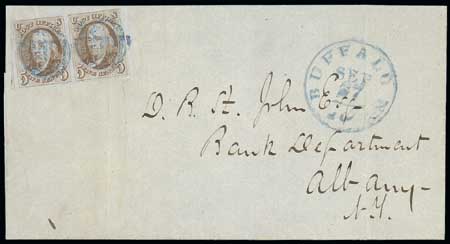 POST OFFICE POST OFFICE
5 5 5 5
FIVE CENTS FIVE CENTS
BUFFALO N.Y.
10
D. R. St. John Esq
Bank Department
Albany
N.Y.